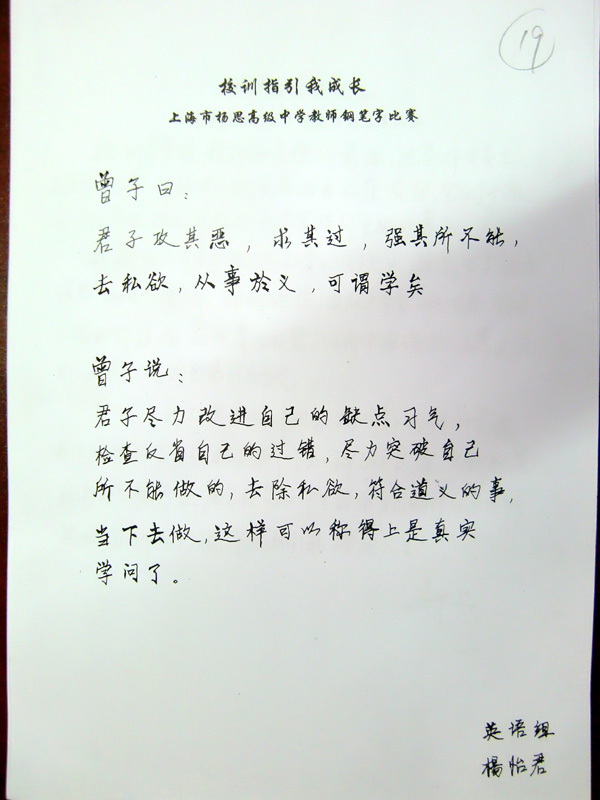 19
校训指引我成长
上海市杨思高级中学教师钢笔字比赛
曾子曰：
君子攻其恶，求其过，强其所不能，
去私欲，从事於义，可谓学矣
曾子说：
君子尽力改进自己的缺点习气，
检查反省自己的过错，尽力突破自己
所不能做的，去除私欲，符合道义的事，
当下去做，这样可以称得上是真实
学问了。
英语组
楊怡君